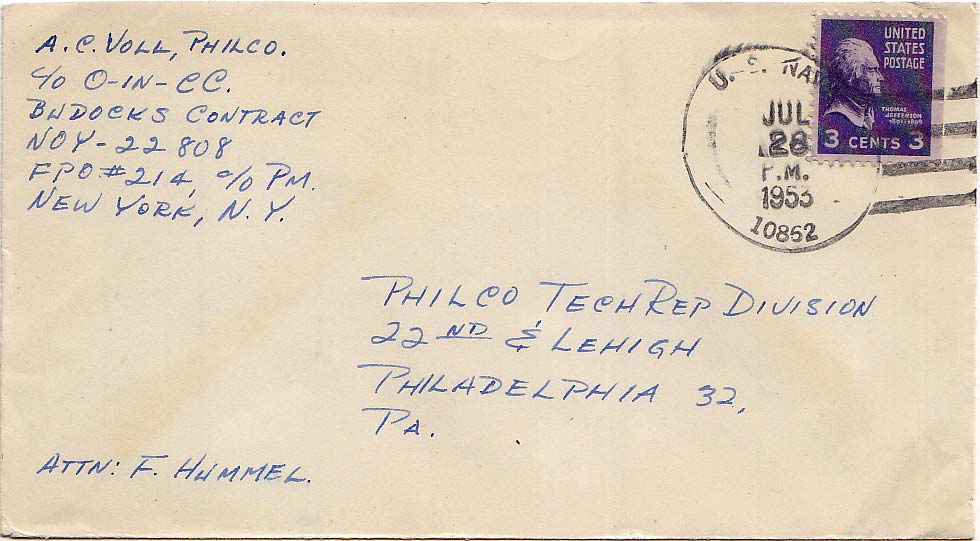 A. C. VOLL, PHILCO.
c/o O-IN-CC.
BUDOCKS CONTRACT
NOY-22808
FPO #214, c/o PM.
NEW YORK, N.Y.
U.S.
JUL
28
P.M.
1953
10862
UNITED
STATES
POSTAGE
THOMAS
JEFFERSON
1801-1809
3 CENTS 3
PHILCO TECHREP DIVISION
22ND & LEHIGH
PHILADELPHIA 32,
PA.
ATTN: F. HUMMEL.